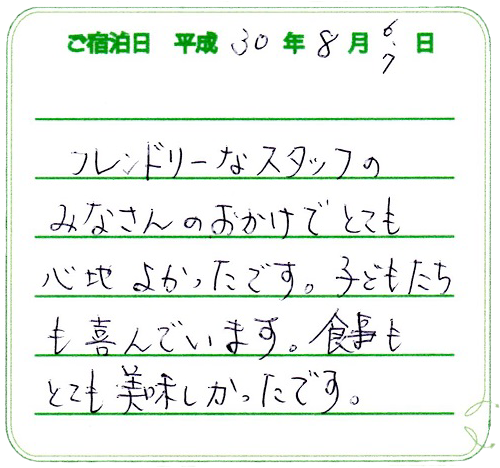 ご宿泊日 平成 30 年 8 月 6.7 日
フレンドリーなスタッフの
みなさんのおかけでとても
心地よかったです。子どもたち
も喜んでいます。食事も
とても美味しかったです。